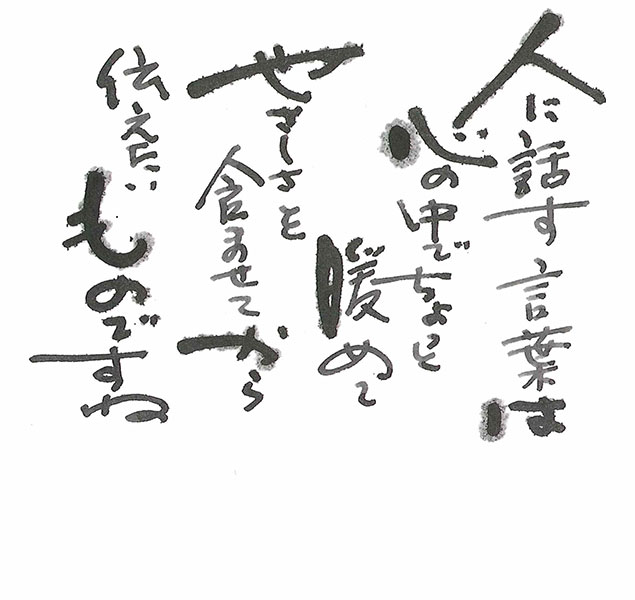 人に話す言葉は
心の中でちょっと
暖めて
やさしさを
含ませてから
伝えたい
ものですね